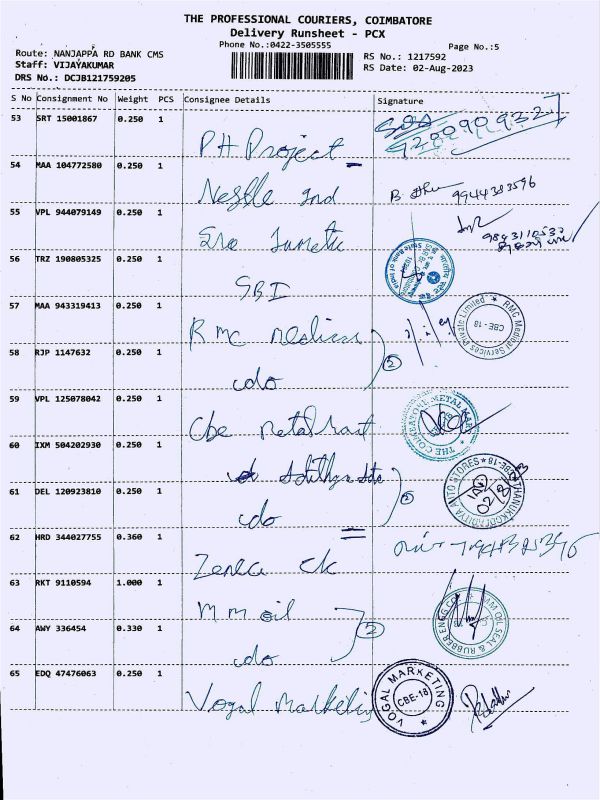 THE PROFESSIONAL COURIERS, COIMBATORE
Delivery Runsheet - PCX
Phone No.:0422-3505555
Page No.:5
Route: NANJAPPA RD BANK CMS
Staff: VIJAYAKUMAR
DRS No.: DCJB121759205
RS No.: 1217592
RS Date: 02-Aug-2023
S No Consignment No Weight PCS Consignee Details Signature
53 SRT 15001867 0.250 1
PH Project
9200909321
54 MAA 104772580 0.250 1
Nestle Ind
9944383596
55 VPL 944079149 0.250 1
Sro
56 TRZ 190805325 0.250 1
SBI
57 MAA 943319413 0.250 1
RMC Medical
RMC Medical Services Private Limited
CBE - 18
58 RJP 1147632 0.250 1
cdo
2
59 VPL 125078042 0.250 1
Cbe Metal Mart
THE COIMBATORE METAL MART
60 IXM 504202930 0.250 1
Adithya Auto
61 DEL 120923810 0.250 1
cdo
2
ADITYA AUTO STORES
CBE-18
62 HRD 344027755 0.360 1
Zenca Ck
63 RKT 9110594 1.000 1
M.M. oil
OIL SEAL & RUBBER ENGG CO
64 AWY 336454 0.330 1
cdo
2
65 EDQ 47476063 0.250 1
Vogal Marketing
VOGAL MARKETING
CBE-18